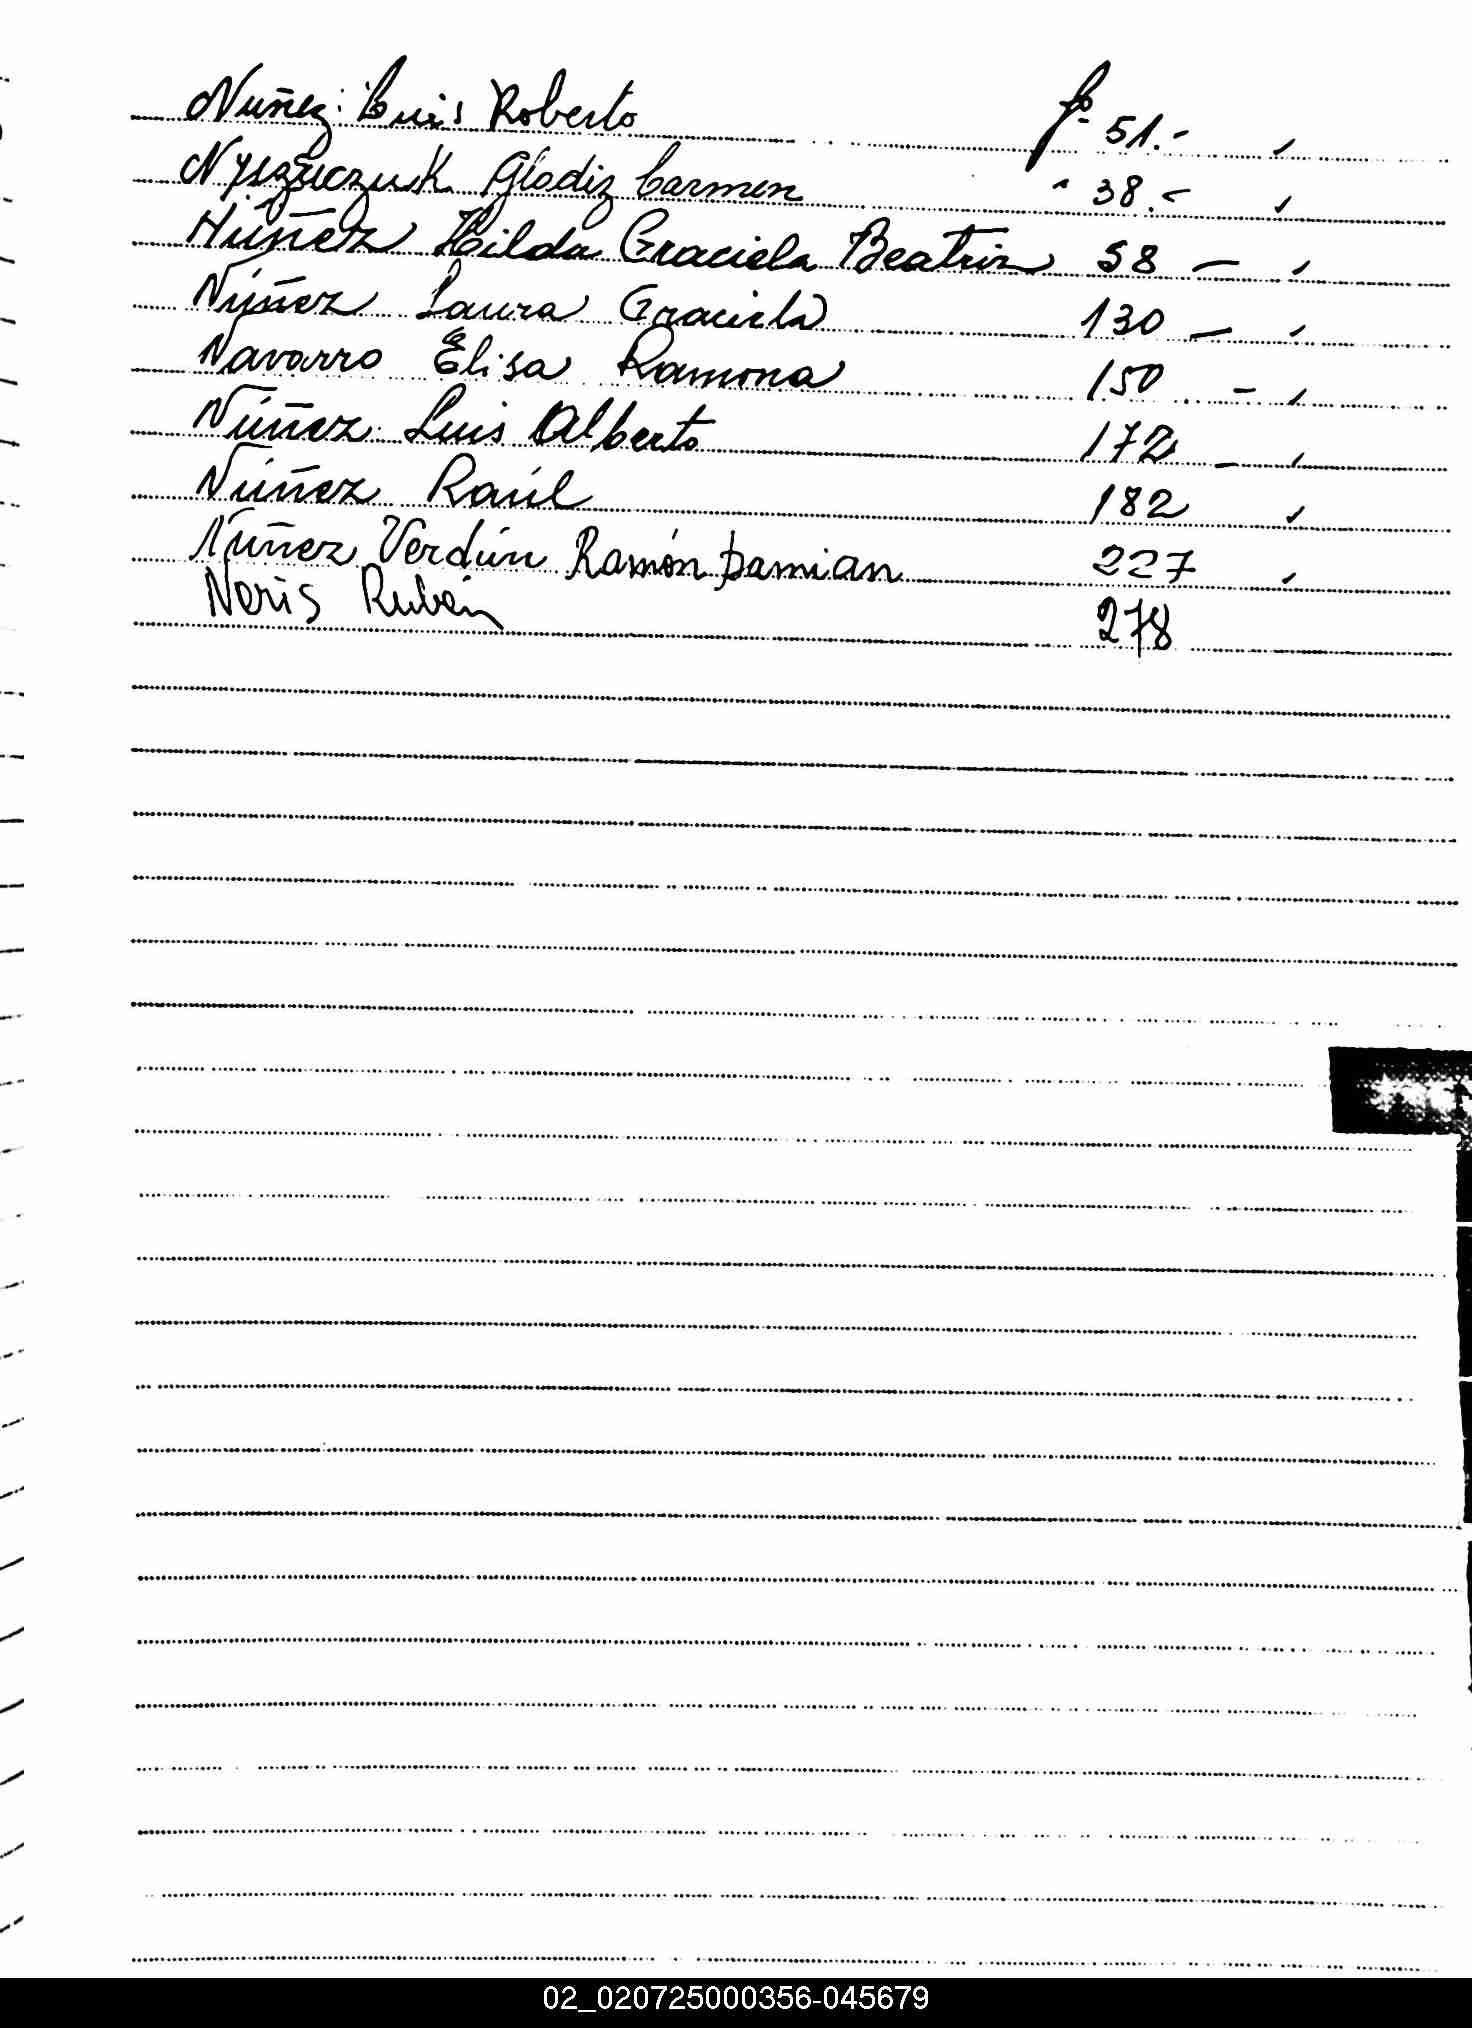 Nuñez: Luis Roberto fº 51.- ✓
Nyszuczuk Gladiz Carmen " 38.- ✓
Núñez Hilda Graciela Beatriz 58 - ✓
Núñez Laura Graciela 130 - ✓
Navarro Elisa Ramona 150 - ✓
Núñez Luis Alberto 172 - ✓
Núñez Raúl 182 ✓
Nuñez Verdún Ramón Damian 227 ✓
Neris Rubén 278
02_020725000356-045679